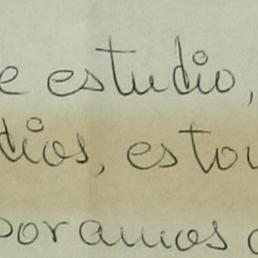 e estudio,
dios, estou
boramos